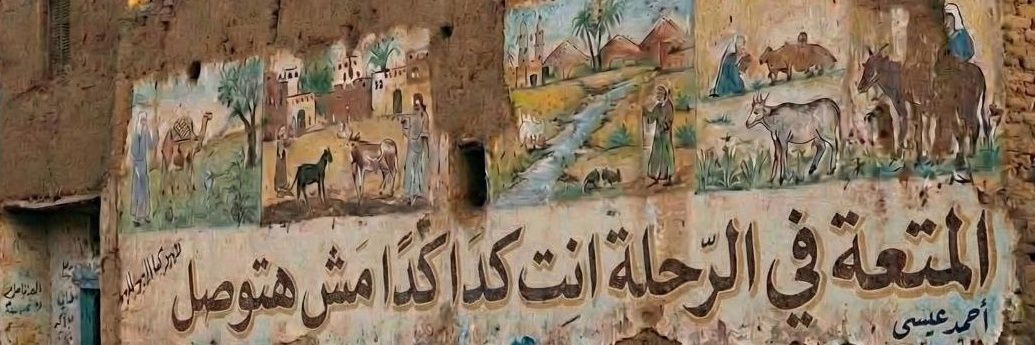 المتعة في الرّحلة انتِ كدَا كدَا مَش هتوصل
أحمد عيسى